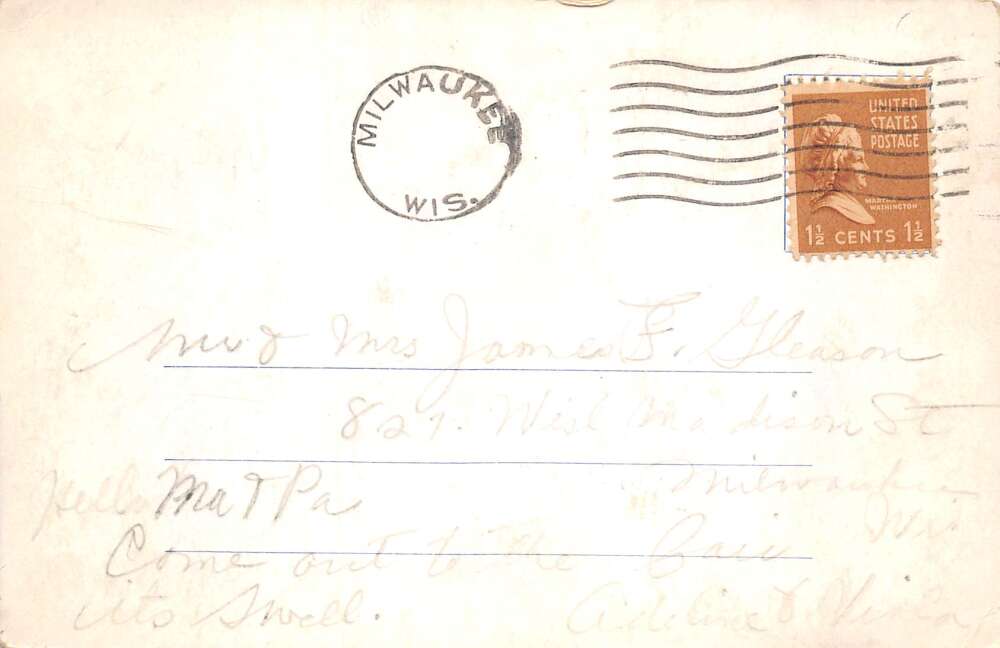 MILWAUKEE
WIS.
UNITED
STATES
POSTAGE
MARTHA
WASHINGTON
1½ CENTS 1½
Mr & Mrs James F. Gleason
827. West Madison St
Milwaukee
Wis
Hello Ma & Pa
Come out to the
its Swell.
Adeline &